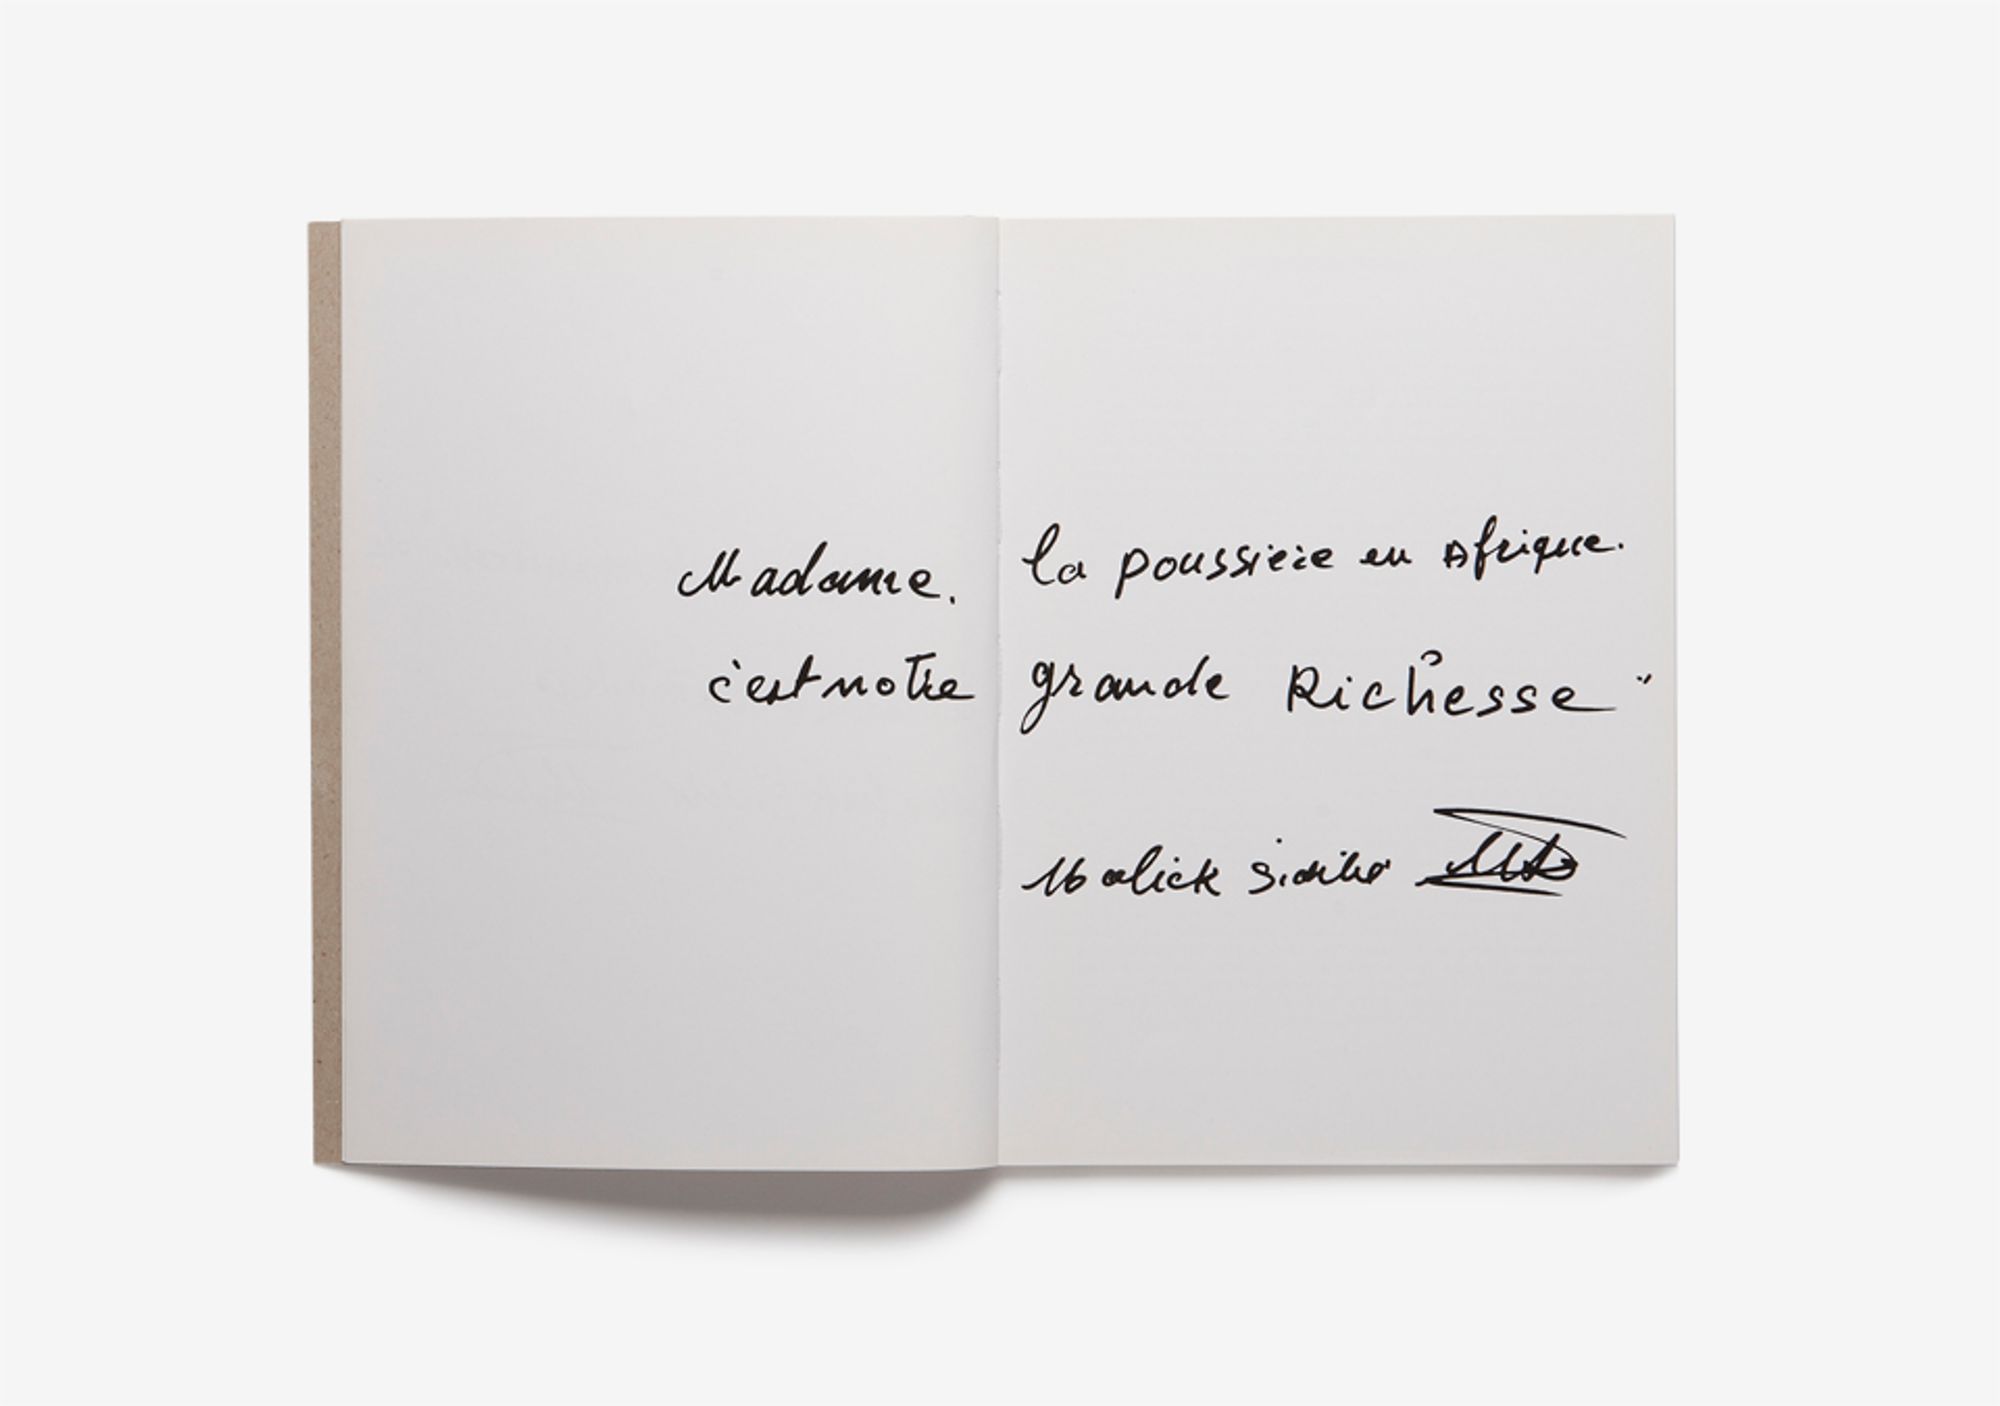 Madame. la poussière en Afrique.
c'est notre grande Richesse"
Malick Sidibé